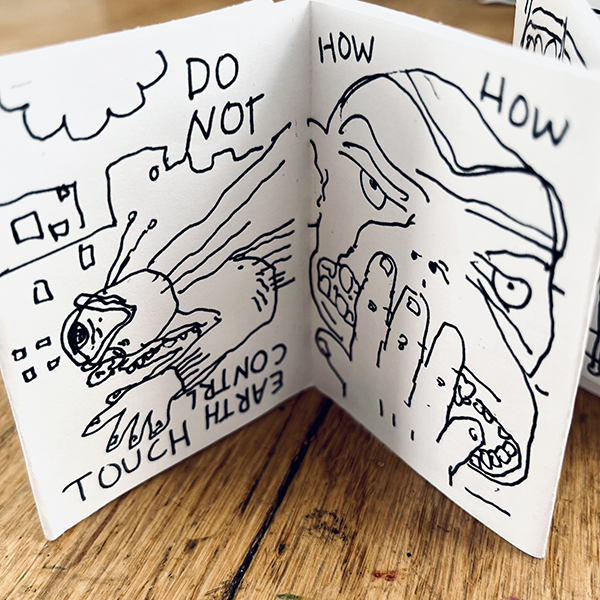 DO
NOT
TOUCH EARTH
CONTRL
HOW
HOW